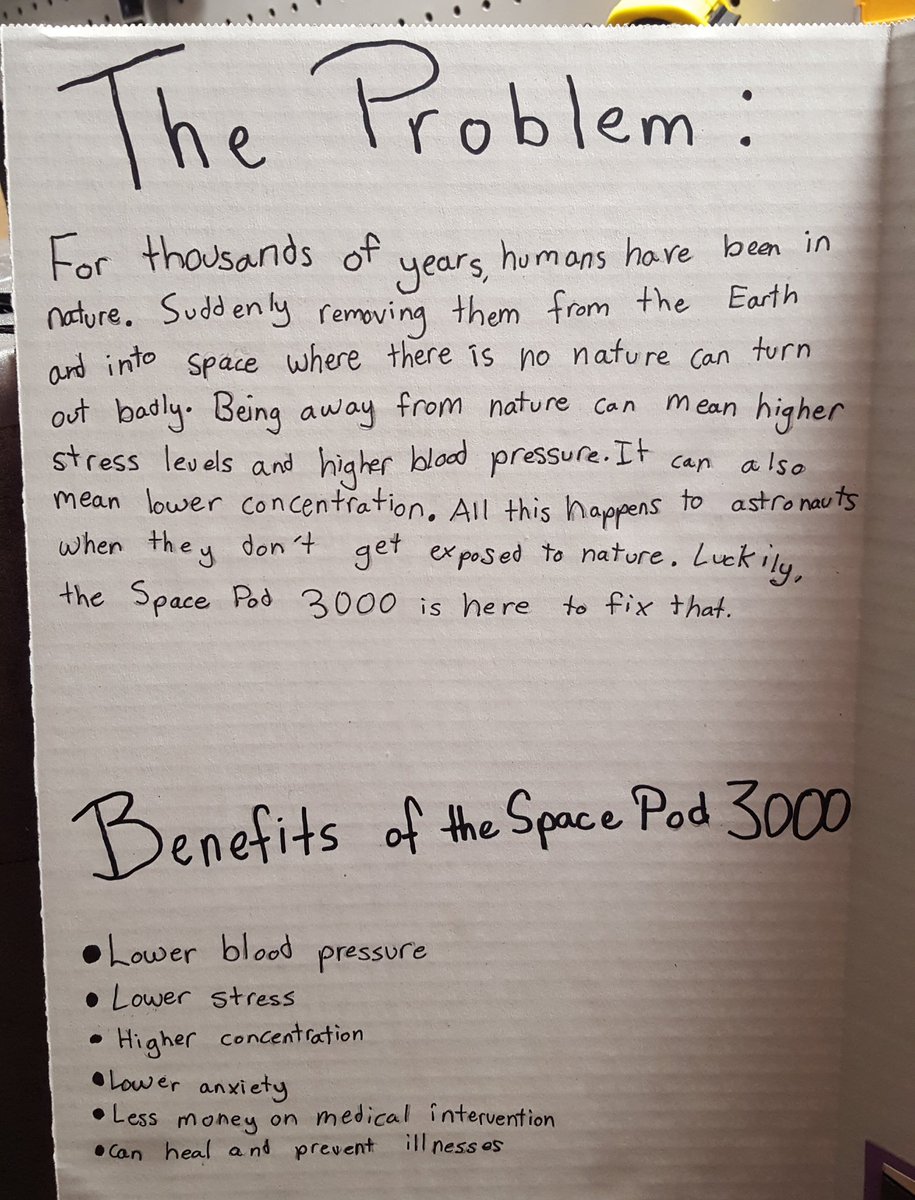 The Problem:
For thousands of years, humans have been in
nature. Suddenly removing them from the Earth
and into space where there is no nature can turn
out badly. Being away from nature can mean higher
stress levels and higher blood pressure. It can also
mean lower concentration. All this happens to astronauts
when they don't get exposed to nature. Luckily,
the Space Pod 3000 is here to fix that.
Benefits of the Space Pod 3000
• Lower blood pressure
• Lower stress
• Higher concentration
• Lower anxiety
• Less money on medical intervention
• can heal and prevent illnesses